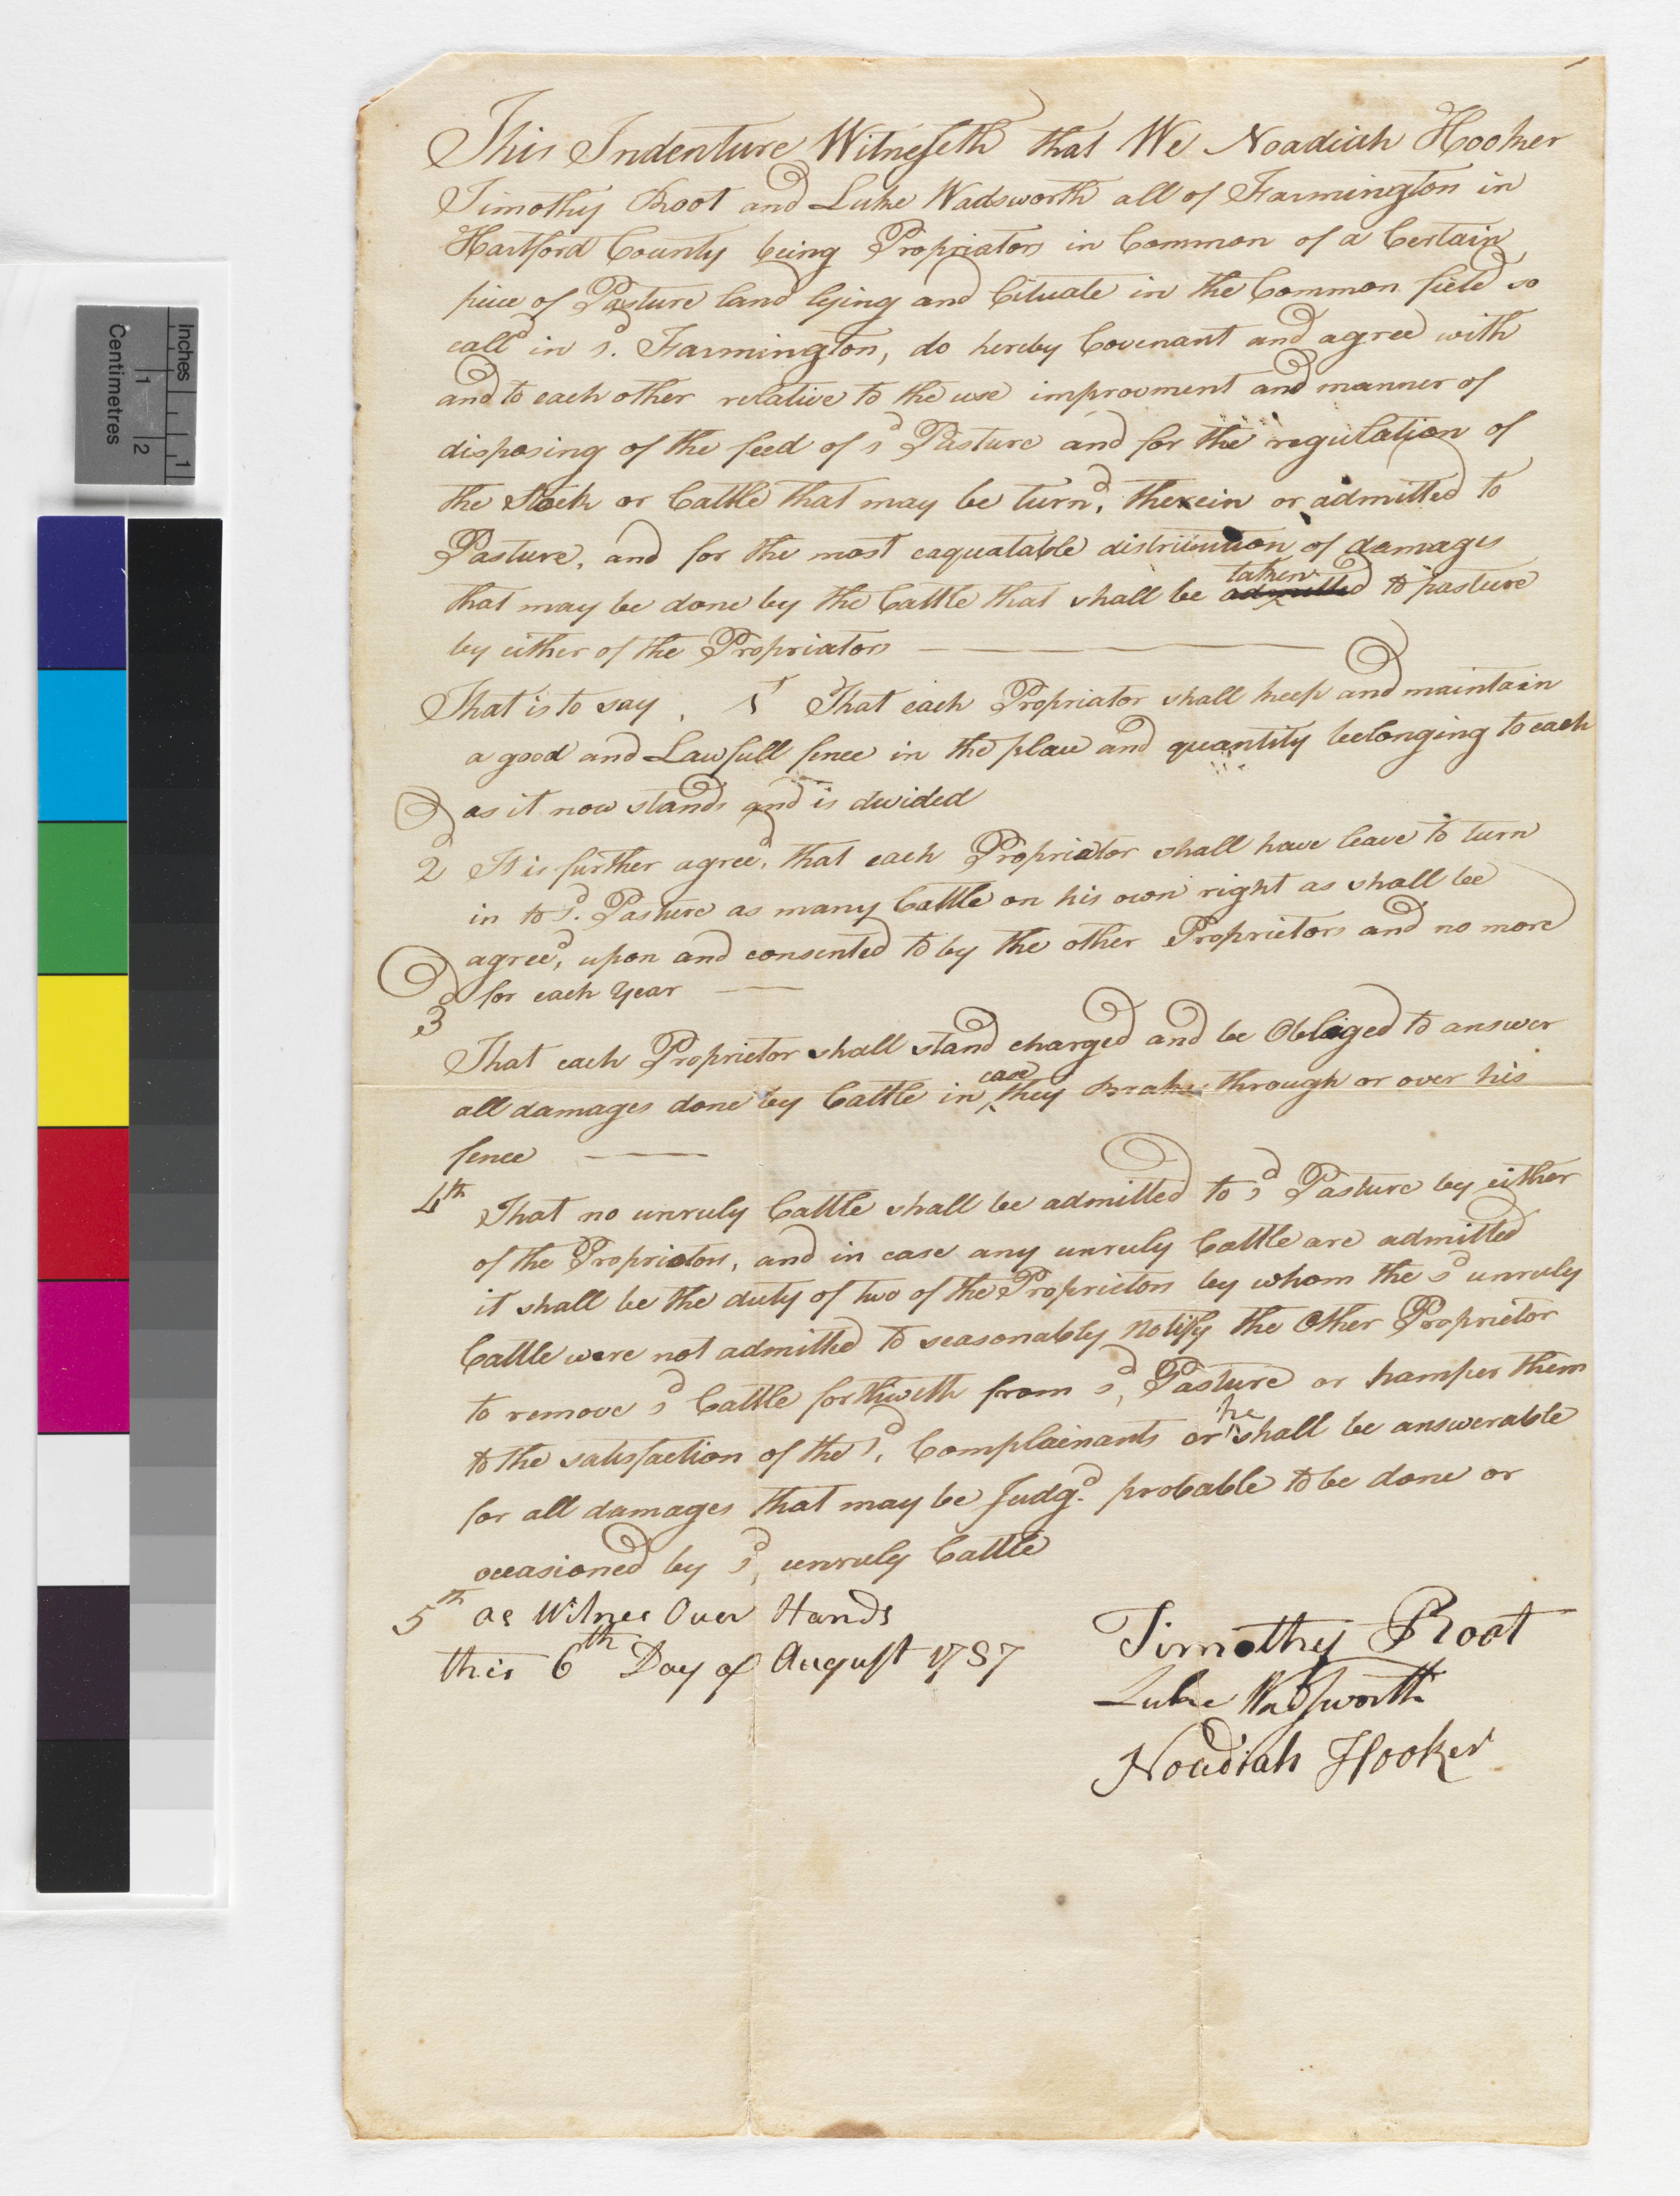 Inches
1
Centimetres
1
2
This Indenture Witnesseth that We Noadiah Hooker
Timothy Root and Luke Wadsworth all of Farmington in
Hartford County being Propriators in Common of a Certain
piece of Pasture land lying and Cituate in the Common field so
calld in sd. Farmington, do hereby Covenant and agree with
and to each other relative to the use improvment and manner of
disposing of the feed of sd Pasture and for the regulation of
the Stock or Cattle that may be turnd, therein or admitted to
Pasture, and for the most eaquatable distribution of damages
that may be done by the Cattle that shall be admitted taken to pasture
by either of the Propriators
That is to say, 1st That each Propriator shall keep and maintain
a good and Lawfull fence in the place and quantity belonging to each
as it now stands and is divided
2d It is further agreed, that each Propriator shall have leave to turn
in to sd. Pasture as many Cattle on his own right as shall be
agreed, upon and consented to by the other Proprietors and no more
for each Year
3d
That each Proprietor shall stand charged and be Obliged to answer
all damages done by Cattle in case they Brake through or over his
fence
4th That no unruly Cattle shall be admitted to sd Pasture by either
of the Proprietors, and in case any unruly Cattle are admitted
it shall be the duty of two of the Proprietors by whom the sd unruly
Cattle were not admitted to seasonably Notify the Other Proprietor
to remove sd Cattle forthwith from sd, Pasture or hamper them
to the satisfaction of the sd, Complainants or he shall be answerable
for all damages that may be Judgd. probable to be done or
occasioned by sd, unruly Cattle
5th as Witnes Ouer Hands
this 6th Day of August 1787
Timothy Root
Luke Wadsworth
Noadiah Hooker